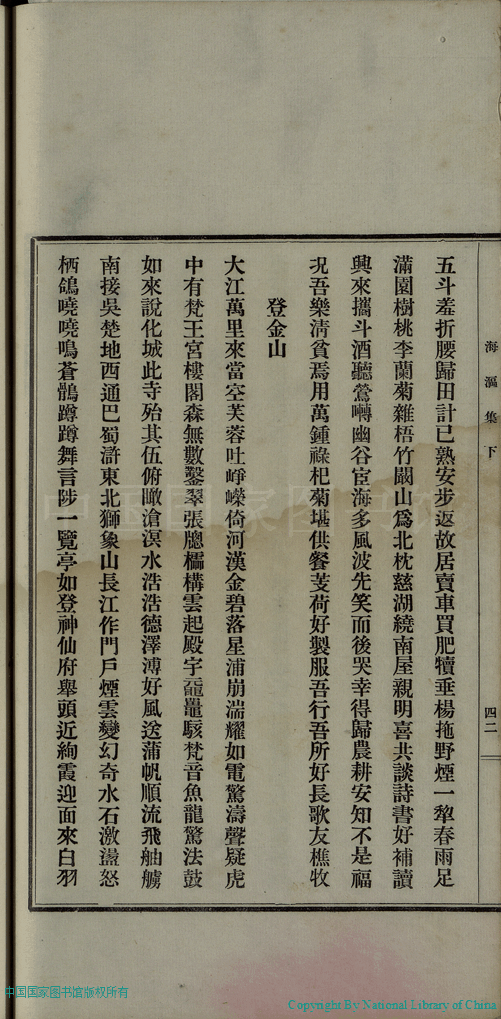 海漚集下
四二
五斗羞折腰歸田計已熟安步返故居賣車買肥犢垂楊拖野煙一犂春雨足
滿園樹桃李蘭菊雜梧竹闞山爲北枕慈湖繞南屋親明喜共談詩書好補讀
興來攜斗酒聽鶯囀幽谷宦海多風波先笑而後哭幸得歸農耕安知不是福
況吾樂清貧焉用萬鍾祿杞菊堪供餐芰荷好製服吾行吾所好長歌友樵牧
登金山
大江萬里來當空芙蓉吐崢嶸倚河漢金碧落星浦崩湍耀如電驚濤聲疑虎
中有梵王宮樓閣森無數鑿翠張牕櫺構雲起殿宇黿鼉駭梵音魚龍驚法鼓
如來說化城此寺殆其伍俯瞰滄溟水浩浩德澤溥好風送蒲帆順流飛舳艫
南接吳楚地西通巴蜀滸東北獅象山長江作門戶煙雲變幻奇水石激盪怒
栖鴿嘵嘵鳴蒼鶻蹲蹲舞言陟一覽亭如登神仙府舉頭近絢霞迎面來白羽
中国国家图书馆
中国国家图书馆版权所有
Copyright By National Library of China